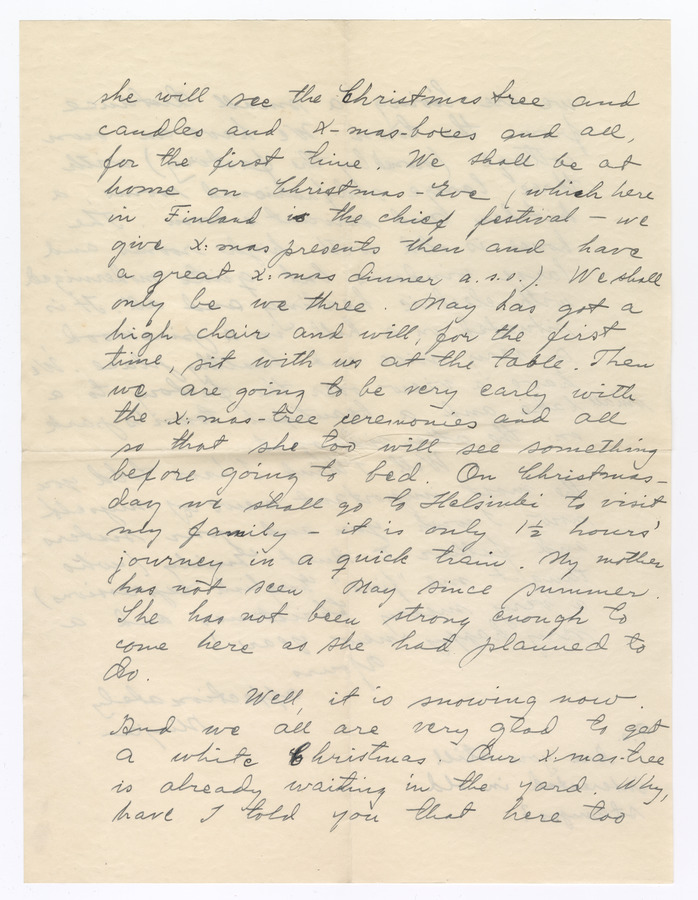 she will see the Christmas tree and
candles and X-mas-boxes and all,
for the first time. We shall be at
home on Christmas-Eve (which here
in Finland is the chief festival - we
give x:mas presents then and have
a great x:mas dinner a.s.o.). We shall
only be we three. May has got a
high chair and will, for the first
time, sit with us at the table. Then
we are going to be very early with
the x:mas-tree ceremonies and all
so that she too will see something
before going to bed. On Christmas-
day we shall go to Helsinki to visit
my family - it is only 1½ hours'
journey in a quick train. My mother
has not seen May since summer.
She has not been strong enough to
come here as she had planned to
do.
Well, it is snowing now.
And we all are very glad to get
a white Christmas. Our x-mas-tree
is already waiting in the yard. Why,
have I told you that here too